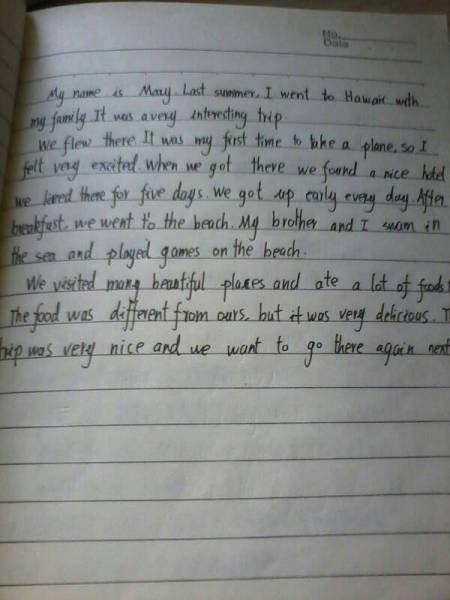 No.
Date
My name is Mary. Last summer, I went to Hawaii with
my family. It was a very interesting trip
We flew there. It was my first time to take a plane, so I
felt very excited. When we got there we found a nice hotel
we lived there for five days. We got up early every day. After
breakfast, we went to the beach. My brother and I swam in
the sea and played games on the beach.
We visited many beautiful places and ate a lot of foods
The food was different from ours, but it was very delicious.
trip was very nice and we want to go there again next